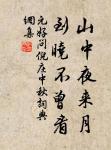 山中夜来月
到晓不曾看
元好问倪庄中秋词典
网集